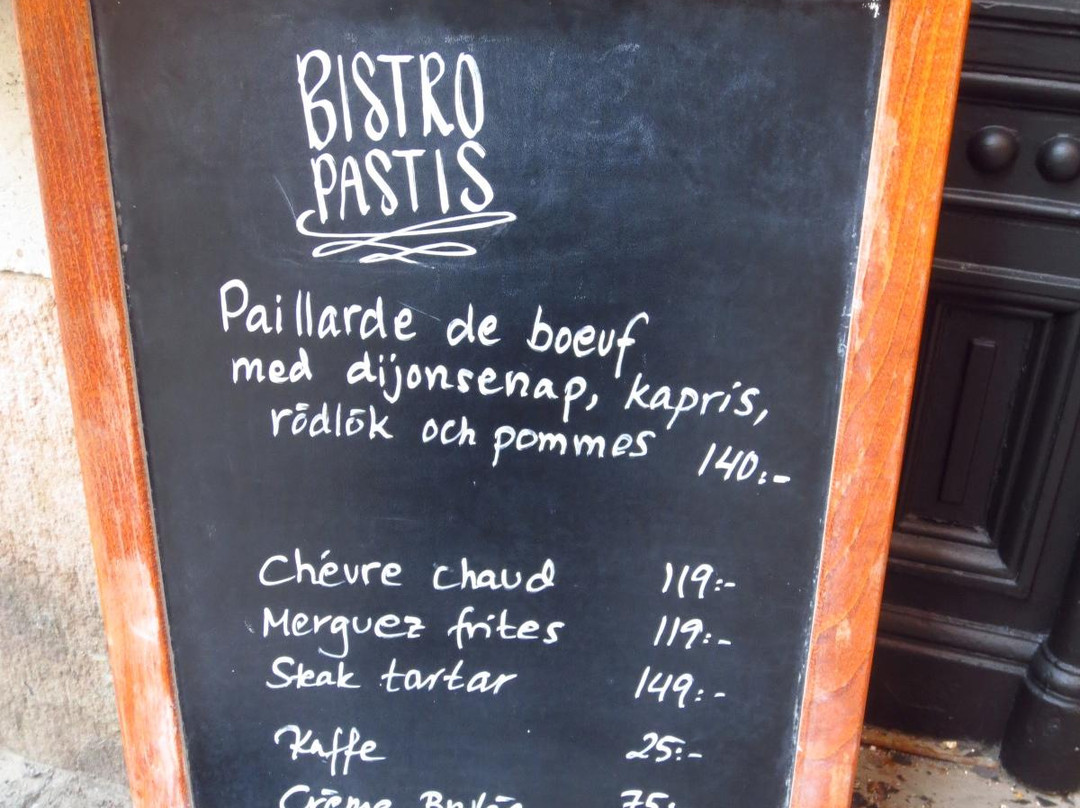 BISTRO
PASTIS
Paillarde de boeuf
med dijonsenap, kapris,
rödlök och pommes 140:-
Chévre chaud 119:-
Merguez frites 119:-
Steak tartar 149:-
Kaffe 25:-
Crème Brulée 75:-